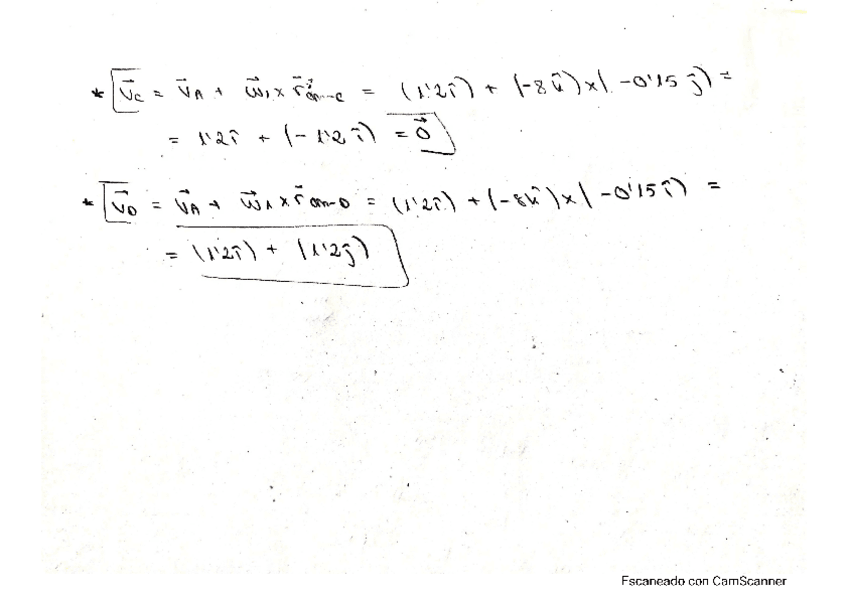 * v⃗C = v⃗A + ω⃗1 × r⃗cm-C = (1'2î) + (-8k̂) × (-0'15 ĵ) =
= 1'2î + (-1'2î) = 0⃗
* v⃗D = v⃗A + ω⃗1 × r⃗cm-D = (1'2î) + (-8k̂) × (-0'15î) =
= (1'2î) + (1'2ĵ)
Escaneado con CamScanner